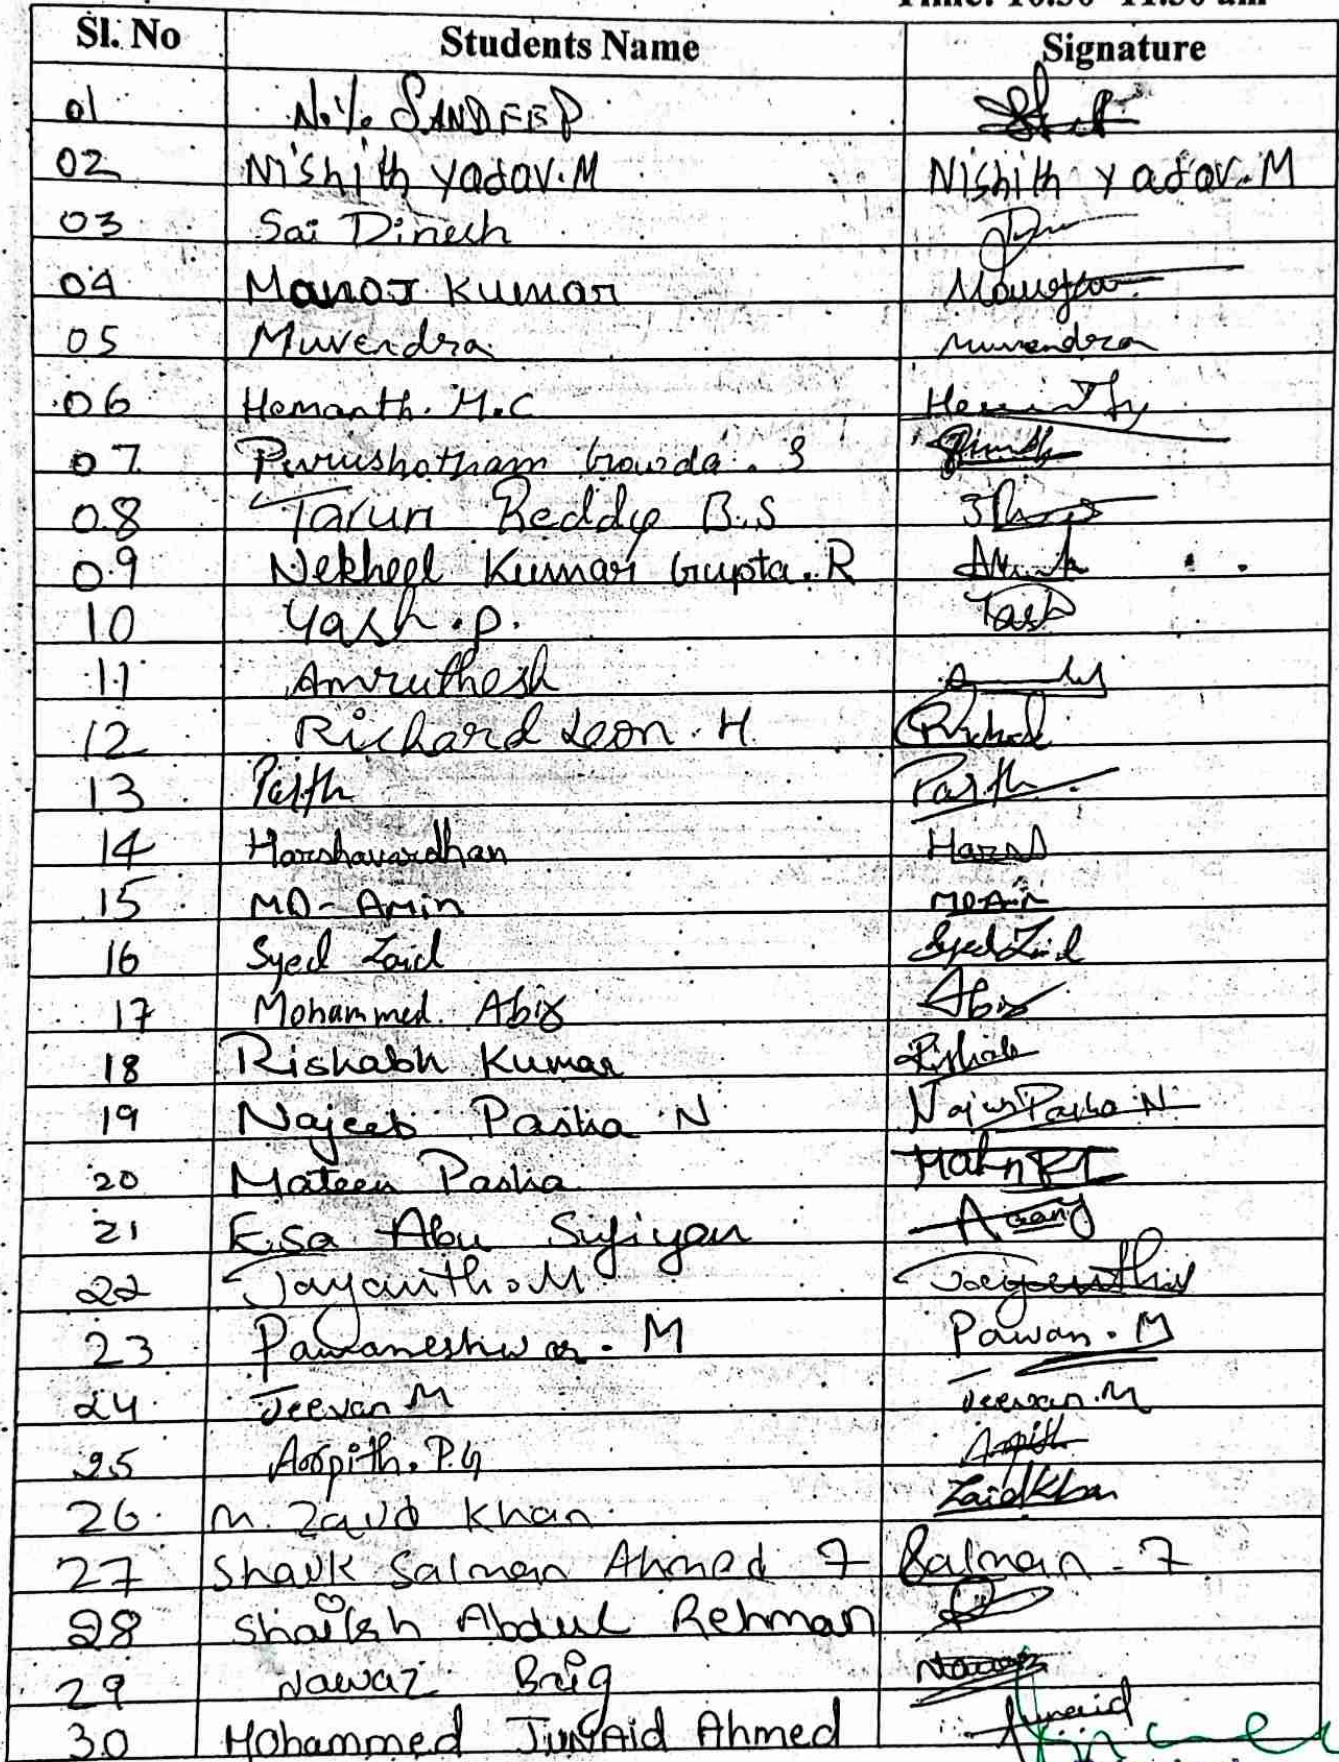 Time: 10:30 - 11:30 am
Sl. No Students Name Signature
01 N.Y. SANDEEP
02 Nishith Yadav.M Nishith Yadav.M
03 Sai Dinesh
04 Manoj Kumar
05 Muvendra Muvendra
06 Hemanth.M.C
07 Purushotham Gowda.S
08 Tarun Reddy B.S
09 Nekheel Kumar Gupta.R
10 Yash.P. Yash
11 Amruthesh
12 Richard Leon.H
13 Parth Parth
14 Harshavardhan
15 MD-Amin
16 Syed Zaid Syed Zaid
17 Mohammed Abiz Abiz
18 Rishabh Kumar
19 Najeeb Pasha N
20 Mateen Pasha
21 Esa Abu Sufiyan
22 Jayanth.M
23 Pawaneshwar.M Pawan.M
24 Jeevan M Jeevan.M
25 Arpith.P.G
26 M. Zaid Khan Zaid Khan
27 Shaik Salman Ahmed 7 Salman-7
28 Shaikh Abdul Rehman
29 Nawaz Baig Nawaz
30 Mohammed Junaid Ahmed Junaid